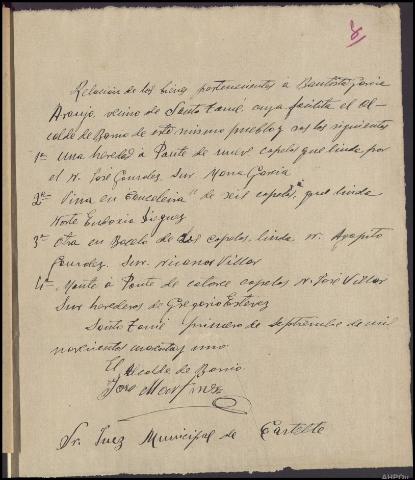 Relación de los bienes pertenecientes á Bautista Garcia
Araujo, vecino de Santa cuya facilita el Al-
calde de Barrio de este mismo pueblo y son los siguientes
1ª una heredad á Ponte de nueve copelos que linda por
el N. José Gonzalez Sur Maria Garcia
2ª Viña en de seis copelos, que linda
Norte Eudoxia
3ª Otra en de dos copelos, linda N. Agapito
Gonzalez. Sur. Nicanor Villar
4ª Monte á Ponte de catorce copelos N. José Villar
Sur herederos de Gregorio Estevez
Santa primero de septiembre de mil
novecientos
El Alcalde de Barrio
Jose Martinez
Sr. Juez Municipal de
AHPOu